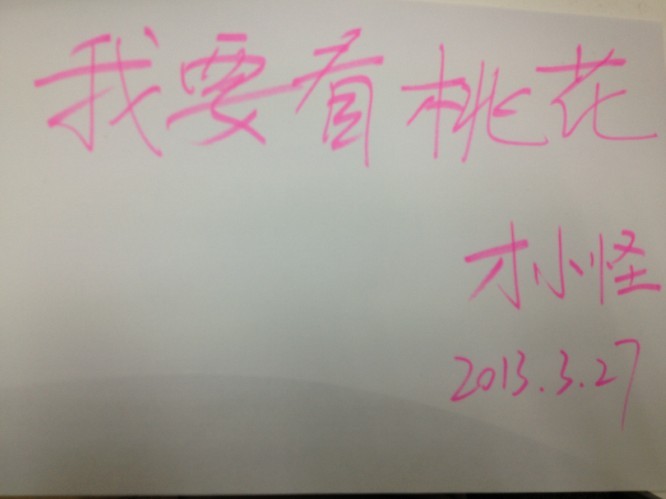 我要看桃花
才小怪
2013.3.27